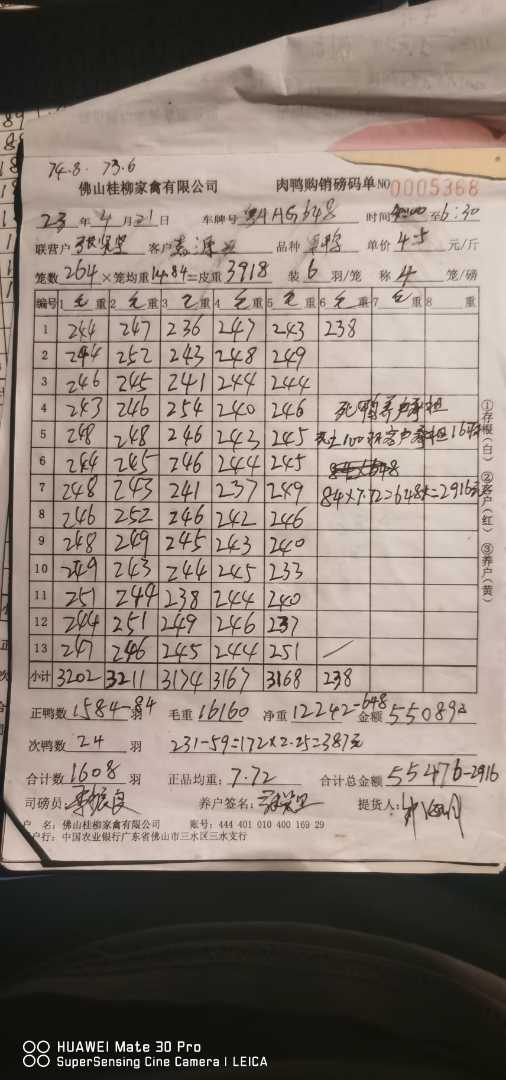 74.8. 73.6
佛山桂柳家禽有限公司 肉鸭购销磅码单 NO 0005368
23 年 4 月 21 日 车牌号 粤AAG648 时间 至 6:30
联营户 客户 品种 单价 4.5 元/斤
笼数 264 × 笼均重 14.84 = 皮重 3918 装 6 羽/笼 称 4 笼/磅
编号 1 毛 重 2 毛 重 3 毛 重 4 毛 重 5 毛 重 6 毛 重 7 毛 重 8 重
1 244 247 236 247 243 238
2 244 252 243 248 249
3 246 245 241 244 244
4 243 246 254 240 246 死鸭养户承担
5 248 248 246 243 245 死上100 客户承担
6 244 245 246 244 245
7 248 243 241 237 249 84×7.72=648斤=2916元
8 246 252 246 242 246
9 248 249 245 243 240
10 249 243 244 245 233
11 251 244 238 244 240
12 244 251 249 246 237
13 247 246 245 244 251
小计 3202 3211 3174 3167 3168 238
正鸭数 1584-84 羽 毛重 16160 净重 12242-648 金额 55089元
次鸭数 24 羽 231-59=172×2.25=387元
合计数 1608 羽 正品均重: 7.72 合计总金额 55476-2916
司磅员: 养户签名: 提货人:
户 名: 佛山桂柳家禽有限公司 账号: 444 401 010 400 169 29
户行: 中国农业银行广东省佛山市三水区三水支行
①存根(白) ②客户(红) ③养户(黄)
HUAWEI Mate 30 Pro
SuperSensing Cine Camera | LEICA